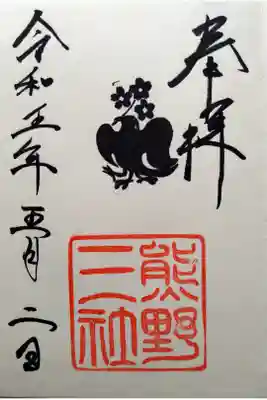 奉拝
熊野
三社
令和五年五月二日